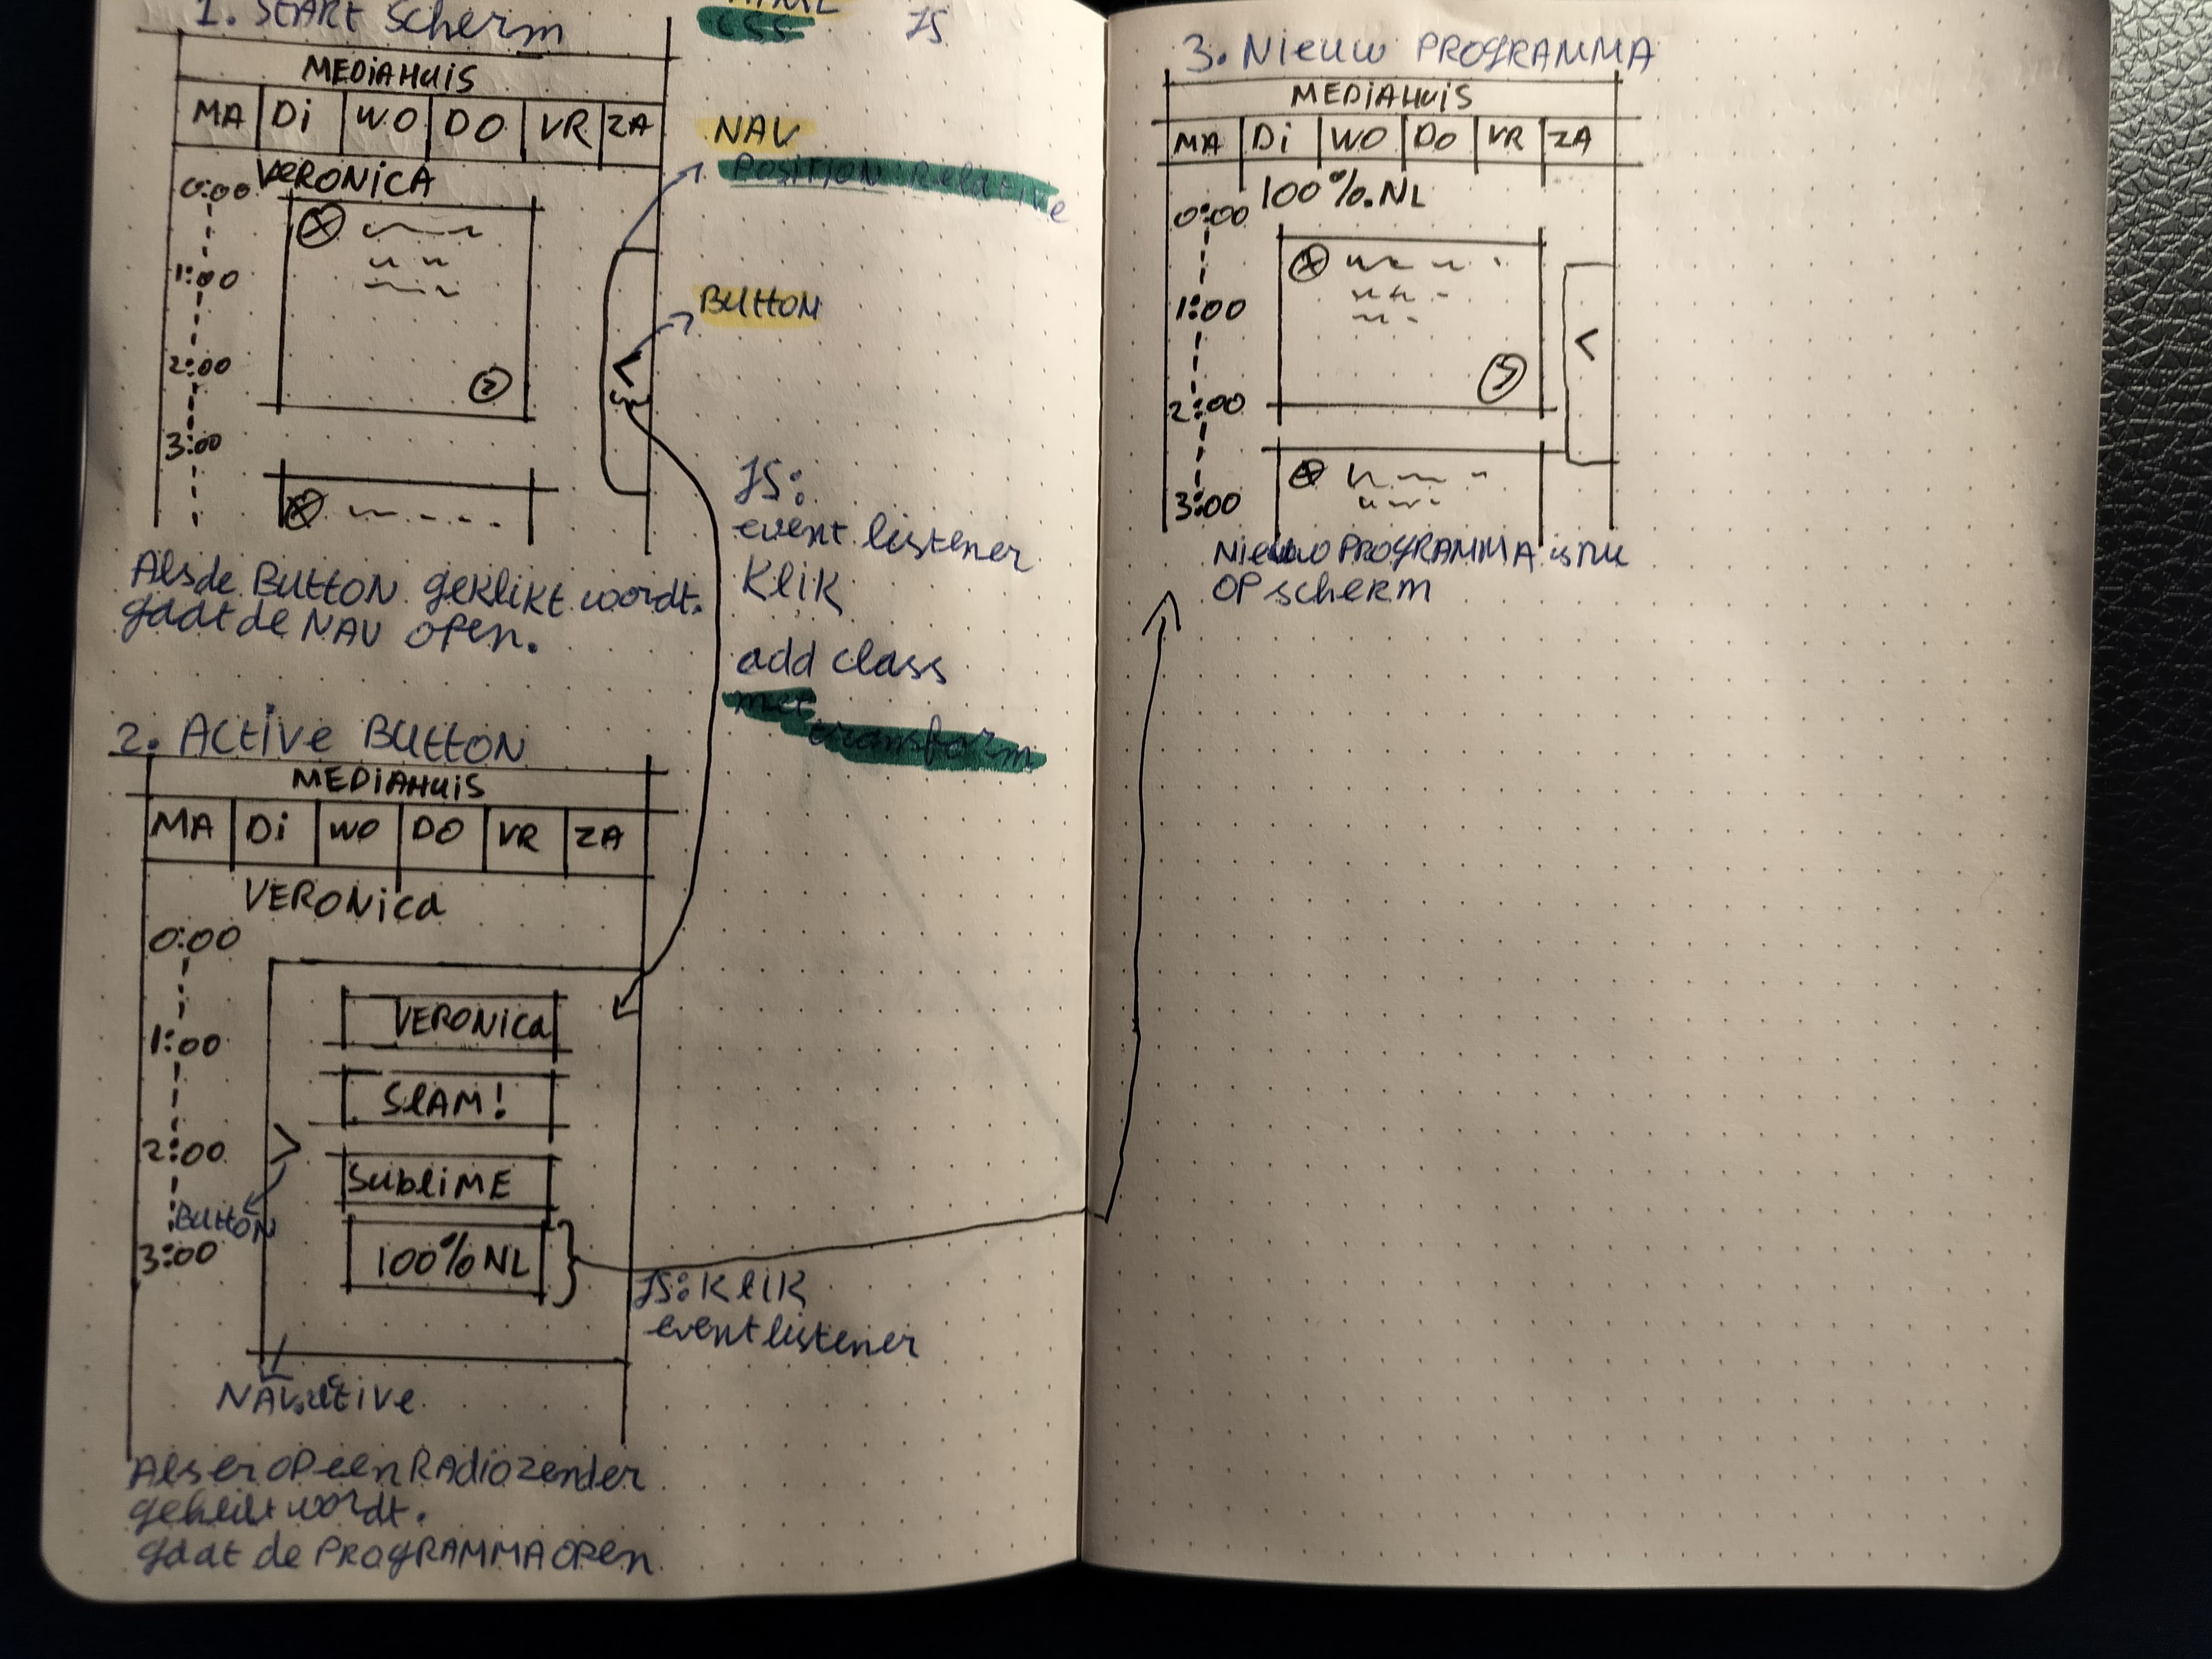 1. START Scherm
HTML
CSS JS
MEDIAHUIS
MA Di WO DO VR ZA
VERONICA
0:00
1:00
2:00
3:00
NAV
Position Relative
BUTTON
<
>
JS:
event listener
Klik
add class
met
transform
Als de BUTTON geklikt wordt.
gaat de NAV open.
2. ACTIVE BUTTON
MEDIAHUIS
MA Di WO DO VR ZA
VERONICA
0:00
1:00
2:00
3:00
VERONICA
SLAM!
SUBLIME
100% NL
>
BUTTON
JS: Klik
event listener
NAV.active
Als er op een Radiozender
geklikt wordt.
gaat de PROGRAMMA open
3. Nieuw PROGRAMMA
MEDIAHUIS
MA Di WO DO VR ZA
100%.NL
0:00
1:00
2:00
3:00
>
<
Nieuw PROGRAMMA is nu
op scherm